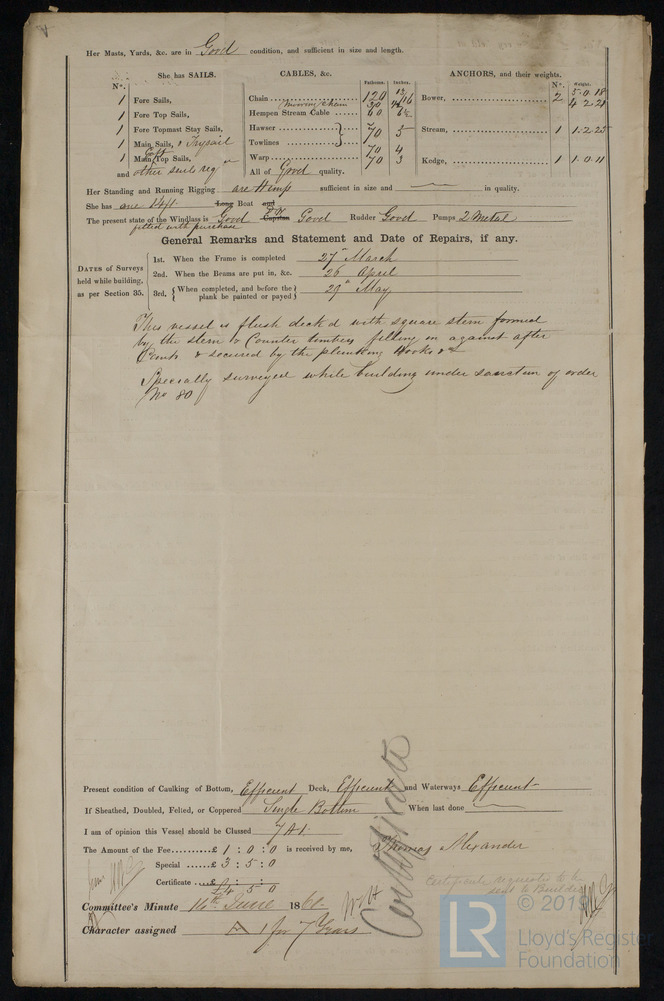 Her Masts, Yards, &c. are in Good condition, and sufficient in size and length.
She has SAILS. CABLES, &c. Fathoms. Inches. ANCHORS, and their weights. Nº. Weight.
Nº.
1 Fore Sails, Chain 120 Bower, 2 5 . 0 . 18
Mooring Chain 30 4 . 2 . 21
1 Fore Top Sails, Hempen Stream Cable 60 6½
1 Fore Topmast Stay Sails, Hawser 70 5 Stream, 1 1 . 2 . 25
1 Main Sails, & Trysail Towlines 70 4
1 Main Gaff Top Sails, Warp 70 3 Kedge, 1 1 . 0 . 11
and other sails req All of Good quality.
Her Standing and Running Rigging are Hemp sufficient in size and in quality.
She has one 14ft Long Boat and
The present state of the Windlass is Good Capstan Good Rudder Good Pumps 2 Metal
fitted with purchase
General Remarks and Statement and Date of Repairs, if any.
DATES of Surveys held while building, as per Section 35.
1st. When the Frame is completed 27th March
2nd. When the Beams are put in, &c. 26 April
3rd, When completed, and before the plank be painted or payed 29th May
This vessel is flush deck'd with square stern formed
by the stern & Counter timbers filling in against after
& secured by the planking Hooks &c
Specially surveyed while building under sanction of order
No 80
Present condition of Caulking of Bottom, Efficient Deck, Efficient and Waterways Efficient
If Sheathed, Doubled, Felted, or Coppered Single Bottom When last done
I am of opinion this Vessel should be Classed 7 A1.
The Amount of the Fee £ 1 : 0 : 0 is received by me, Thomas Alexander
Special £ 3 : 5 : 0
Certificate £4 5 0
Certificate
Certificate requested to be
sent to Builder
Committee's Minute 14th June 1860
Character assigned A 1 for 7 Years
LR
© 2019
Lloyd's Register
Foundation